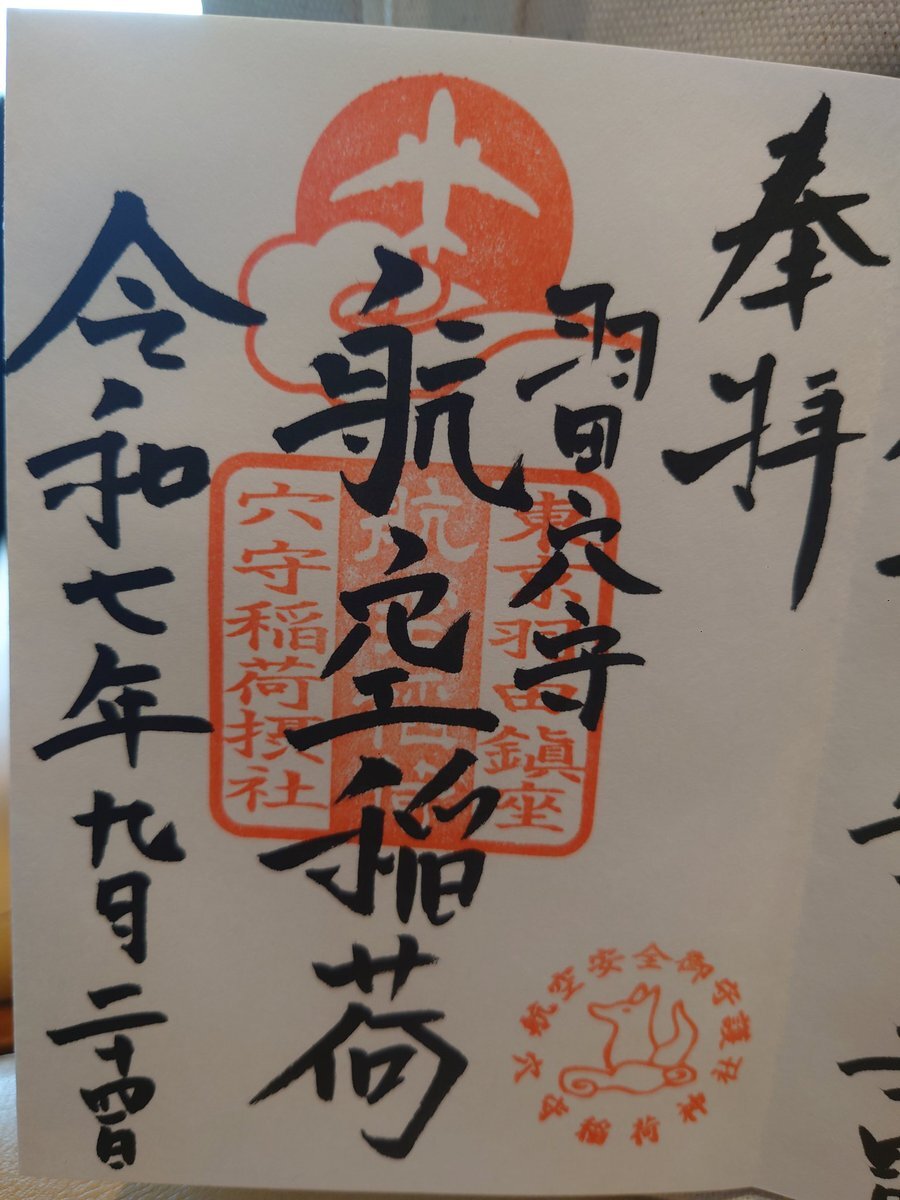 奉拝
羽田穴守
航空稲荷
令和七年九月二十四日
東京羽田鎮座
航空稲荷
穴守稲荷摂社
航空安全御守護
穴守稲荷